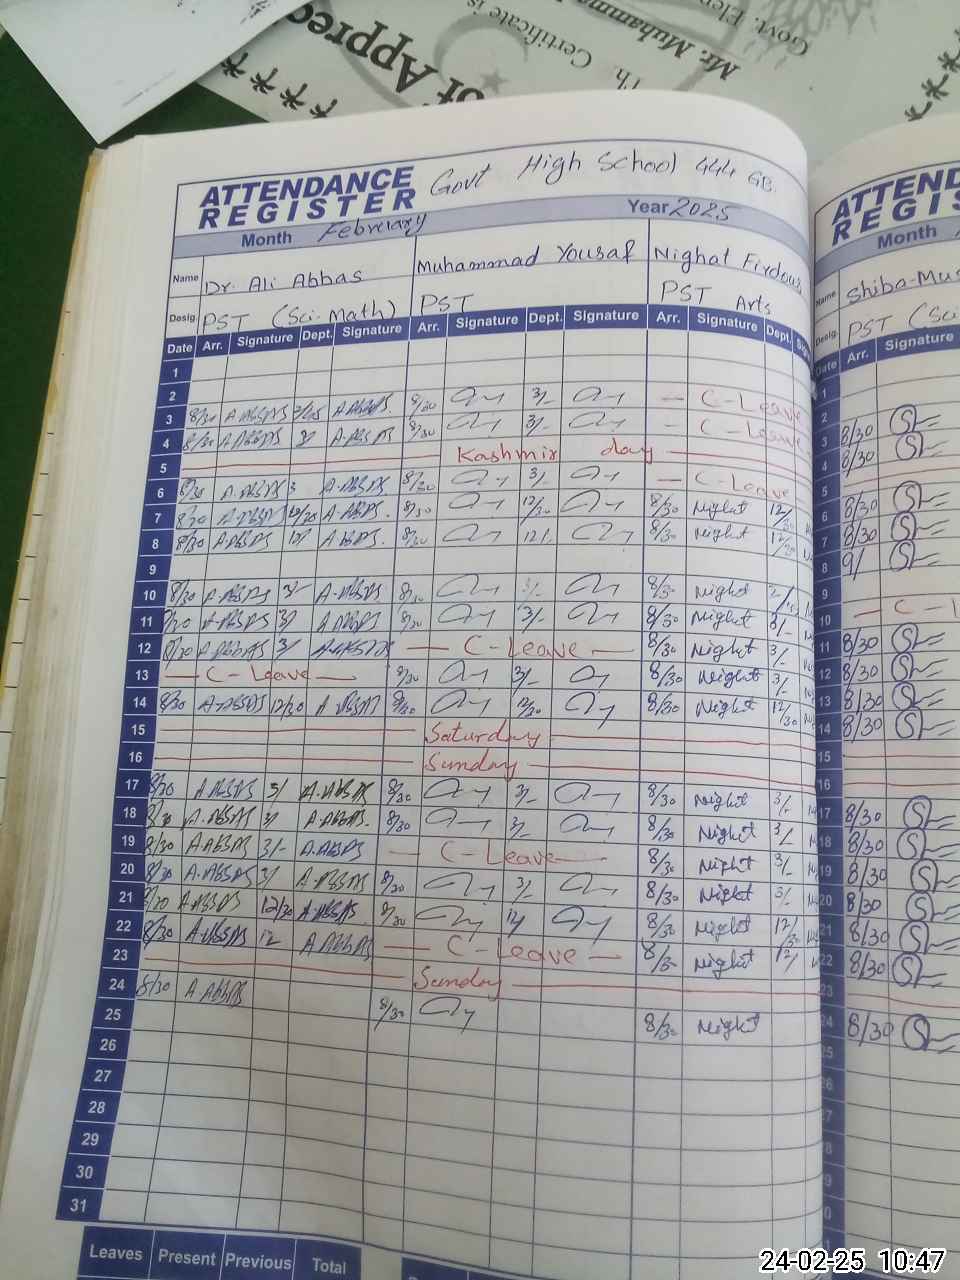 of Apprec
Certificate is
Th
Mr. Muhamma
Govt. Elem
ATTENDANCE REGISTER Govt High School 444 GB.
Month Februrary Year 2025
Name Dr. Ali Abbas Muhammad Yousaf Nighat Firdous
Desig. PST (Sci-Math) PST PST Arts
Date Arr. Signature Dept. Signature Arr. Signature Dept. Signature Arr. Signature Dept.
1
2
3 8/30 A.ABBAS A.ABBAS 8/30 3/- C-Leave
4 8/30 A.ABBAS 3/ A.ABBAS 8/30 3/- C-Leave
5 Kashmir day
6 8/30 A.ABBAS 3 A.ABBAS 8/30 3/- C-Leave
7 8/30 A.ABBAS 12/30 A.ABBAS 8/30 12/30 8/30 Night 12/30
8 8/30 A.ABBAS A.ABBAS 8/30 12/ 8/30 Night 12/30
9
10 8/30 A.ABBAS 3/ A.ABBAS 8/30 3/- 8/30 Night
11 8/30 A.ABBAS 3/ A.ABBAS 8/30 3/- 8/30 Night 3/-
12 8/30 A.ABBAS 3/ A.ABBAS C-Leave 8/30 Night 3/-
13 C-Leave 8/30 3/- 8/30 Night 3/-
14 8/30 A.ABBAS 12/30 A.ABBAS 8/30 12/30 8/30 Night 12/30
15 Saturday
16 Sunday
17 8/30 A.ABBAS 3/ A.ABBAS 8/30 3/- 8/30 Night 3/-
18 8/30 A.ABBAS 3/ A.ABBAS 8/30 3/- 8/30 Night 3/-
19 8/30 A.ABBAS 3/- A.ABBAS C-Leave 8/30 Night 3/-
20 8/30 A.ABBAS 3/ A.ABBAS 8/30 3/- 8/30 Night 3/-
21 8/30 A.ABBAS 12/30 A.ABBAS 8/30 12/ 8/30 Night 12/30
22 8/30 A.ABBAS 12 A.ABBAS C-Leave 8/30 Night 12/
23 Sunday
24 8/30 A.ABBAS 8/30 8/30 Night
25
26
27
28
29
30
31
Leaves Present Previous Total
ATTEND
REGIS
Month
Name Shiba-Mus
Desig. PST (Sci
Date Arr. Signature
1
2
3 8/30
4 8/30
5
6 8/30
7 8/30
8 9/
9
10 C-L
11 8/30
12 8/30
13 8/30
14 8/30
15
16
17 8/30
18 8/30
19 8/30
20 8/30
21 8/30
22 8/30
23
24 8/30
24-02-25 10:47